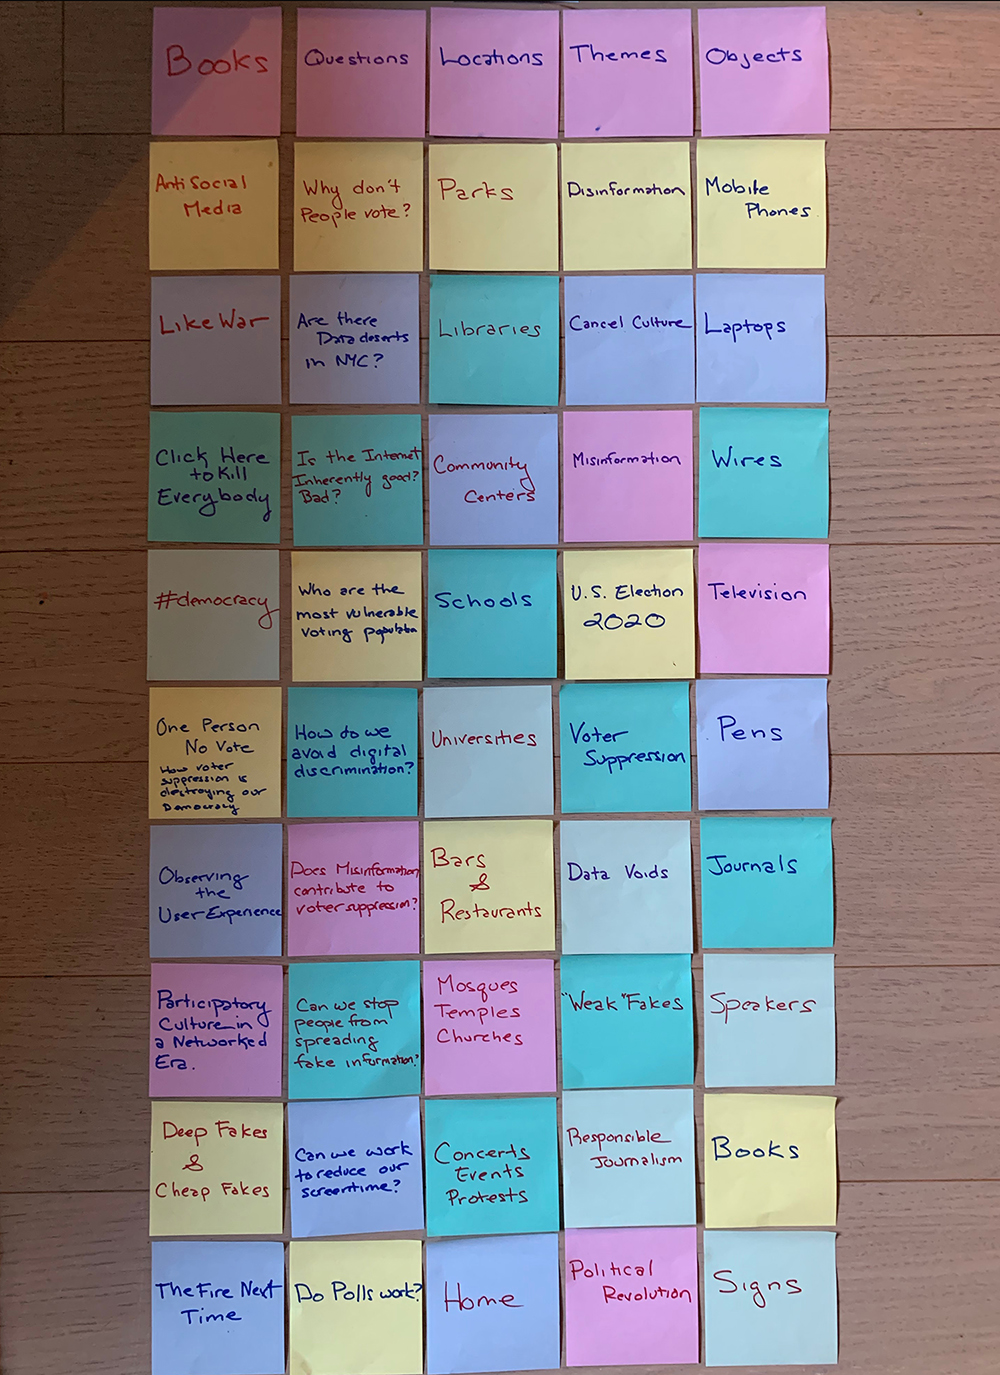 Books
Questions
Locations
Themes
Objects
Anti Social
Media
Why don't
People vote?
Parks
Disinformation
Mobile
Phones
Like War
Are there
Data deserts
in NYC?
Libraries
Cancel Culture
Laptops
Click Here
to Kill
Everybody
Is the Internet
Inherently good?
Bad?
Community
Centers
Misinformation
Wires
#democracy
Who are the
most vulnerable
voting population
Schools
U.S. Election
2020
Television
One Person
No Vote
How voter
suppression is
destroying our
Democracy
How do we
avoid digital
discrimination?
Universities
Voter
Suppression
Pens
Observing
the
User Experience
Does Misinformation
contribute to
voter suppression?
Bars
&
Restaurants
Data Voids
Journals
Participatory
Culture in
a Networked
Era.
Can we stop
people from
spreading
fake information?
Mosques
Temples
Churches
"Weak" Fakes
Speakers
Deep Fakes
&
Cheap Fakes
Can we work
to reduce our
screentime?
Concerts
Events
Protests
Responsible
Journalism
Books
The Fire Next
Time
Do Polls work?
Home
Political
Revolution
Signs